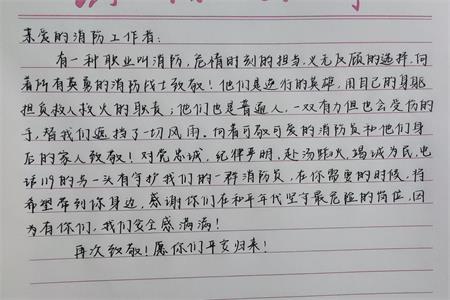 亲爱的消防工作者：
有一种职业叫消防，危情时刻的担当，义无反顾的选择，向
着所有英勇的消防战士致敬！他们是逆行的英雄，用自己的身躯
担负救人救火的职责；他们也是普通人，一双有力但也会受伤的
手，替我们遮挡了一切风雨。向着可敬可爱的消防员和他们身
后的家人致敬！对党忠诚，纪律严明，赴汤蹈火，竭诚为民，电
话119的另一头有守护我们的一群消防员，在你需要的时候，将
希望带到你身边，感谢你们在和平年代坚守最危险的岗位，因
为有你们，我们安全感满满！
再次致敬！愿你们平安归来！